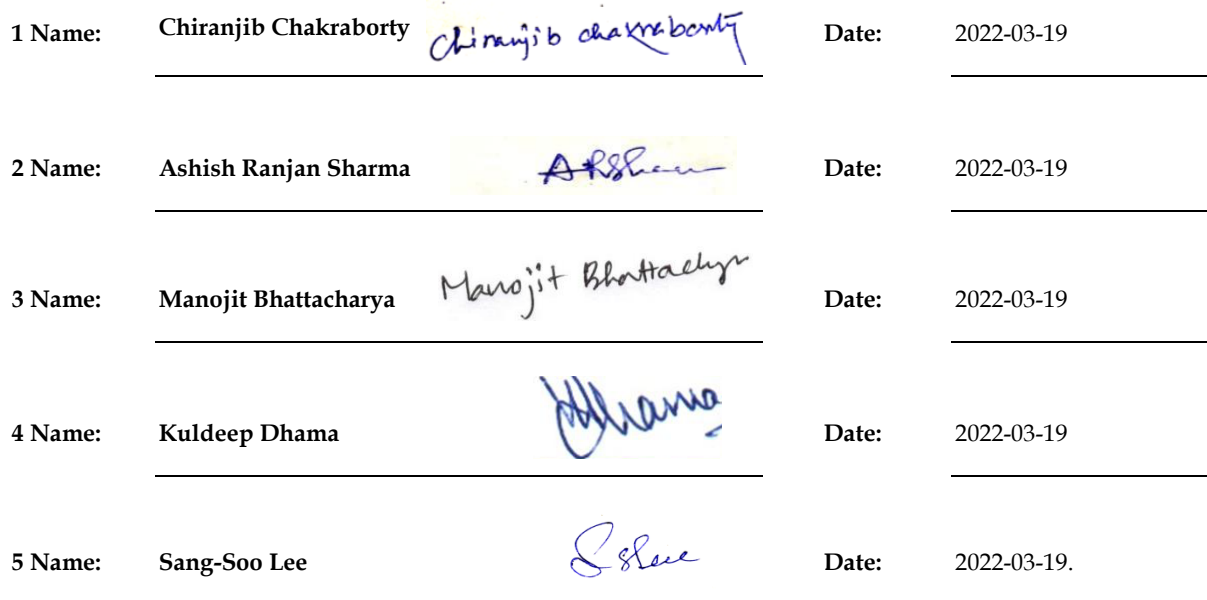 1 Name: Chiranjib Chakraborty Chiranjib chakraborty Date: 2022-03-19
2 Name: Ashish Ranjan Sharma ARSharma Date: 2022-03-19
3 Name: Manojit Bhattacharya Manojit Bhattacharya Date: 2022-03-19
4 Name: Kuldeep Dhama KDhama Date: 2022-03-19
5 Name: Sang-Soo Lee SSLee Date: 2022-03-19.